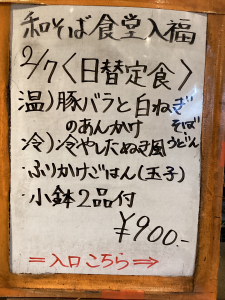 和そば食堂入福
2/7〈日替定食〉
温)豚バラと白ねぎ
のあんかけ そば
冷)冷やしたぬき風 うどん
・ふりかけごはん(玉子)
・小鉢2品付
¥900.-
=入口こちら⇒